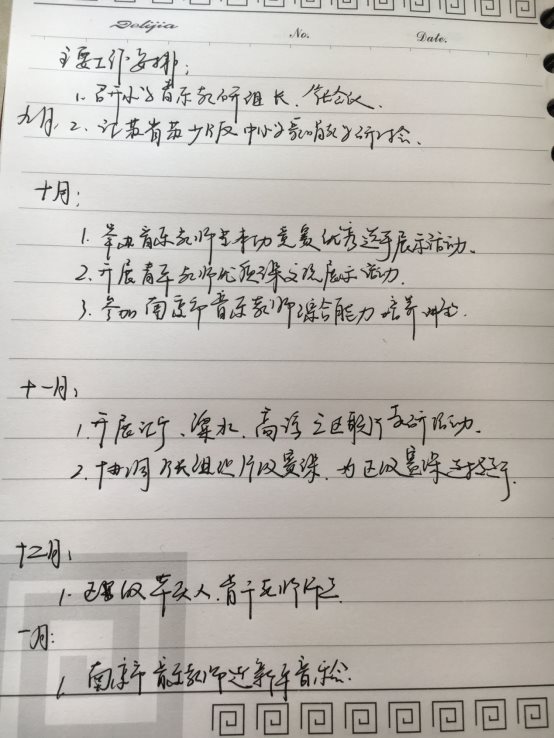 Delijia
No. Date.
主要工作安排:
1. 召开小学音乐教研组长、会议.
九月. 2. 江苏省苏少版中小学歌唱教学研讨会.
十月:
1. 举办音乐教师基本功竞赛优秀选手展示活动.
2. 开展青年教师优质课交流展示活动.
3. 参加南京市音乐教师综合能力培养
十一月:
1. 开展江宁、溧水、高淳三区联片教研活动.
2. 协调组织片级赛课, 为区级赛课选拔
十二月:
1. 区级带头人、青年教师
一月:
1. 南京市音乐教师迎新年音乐会.